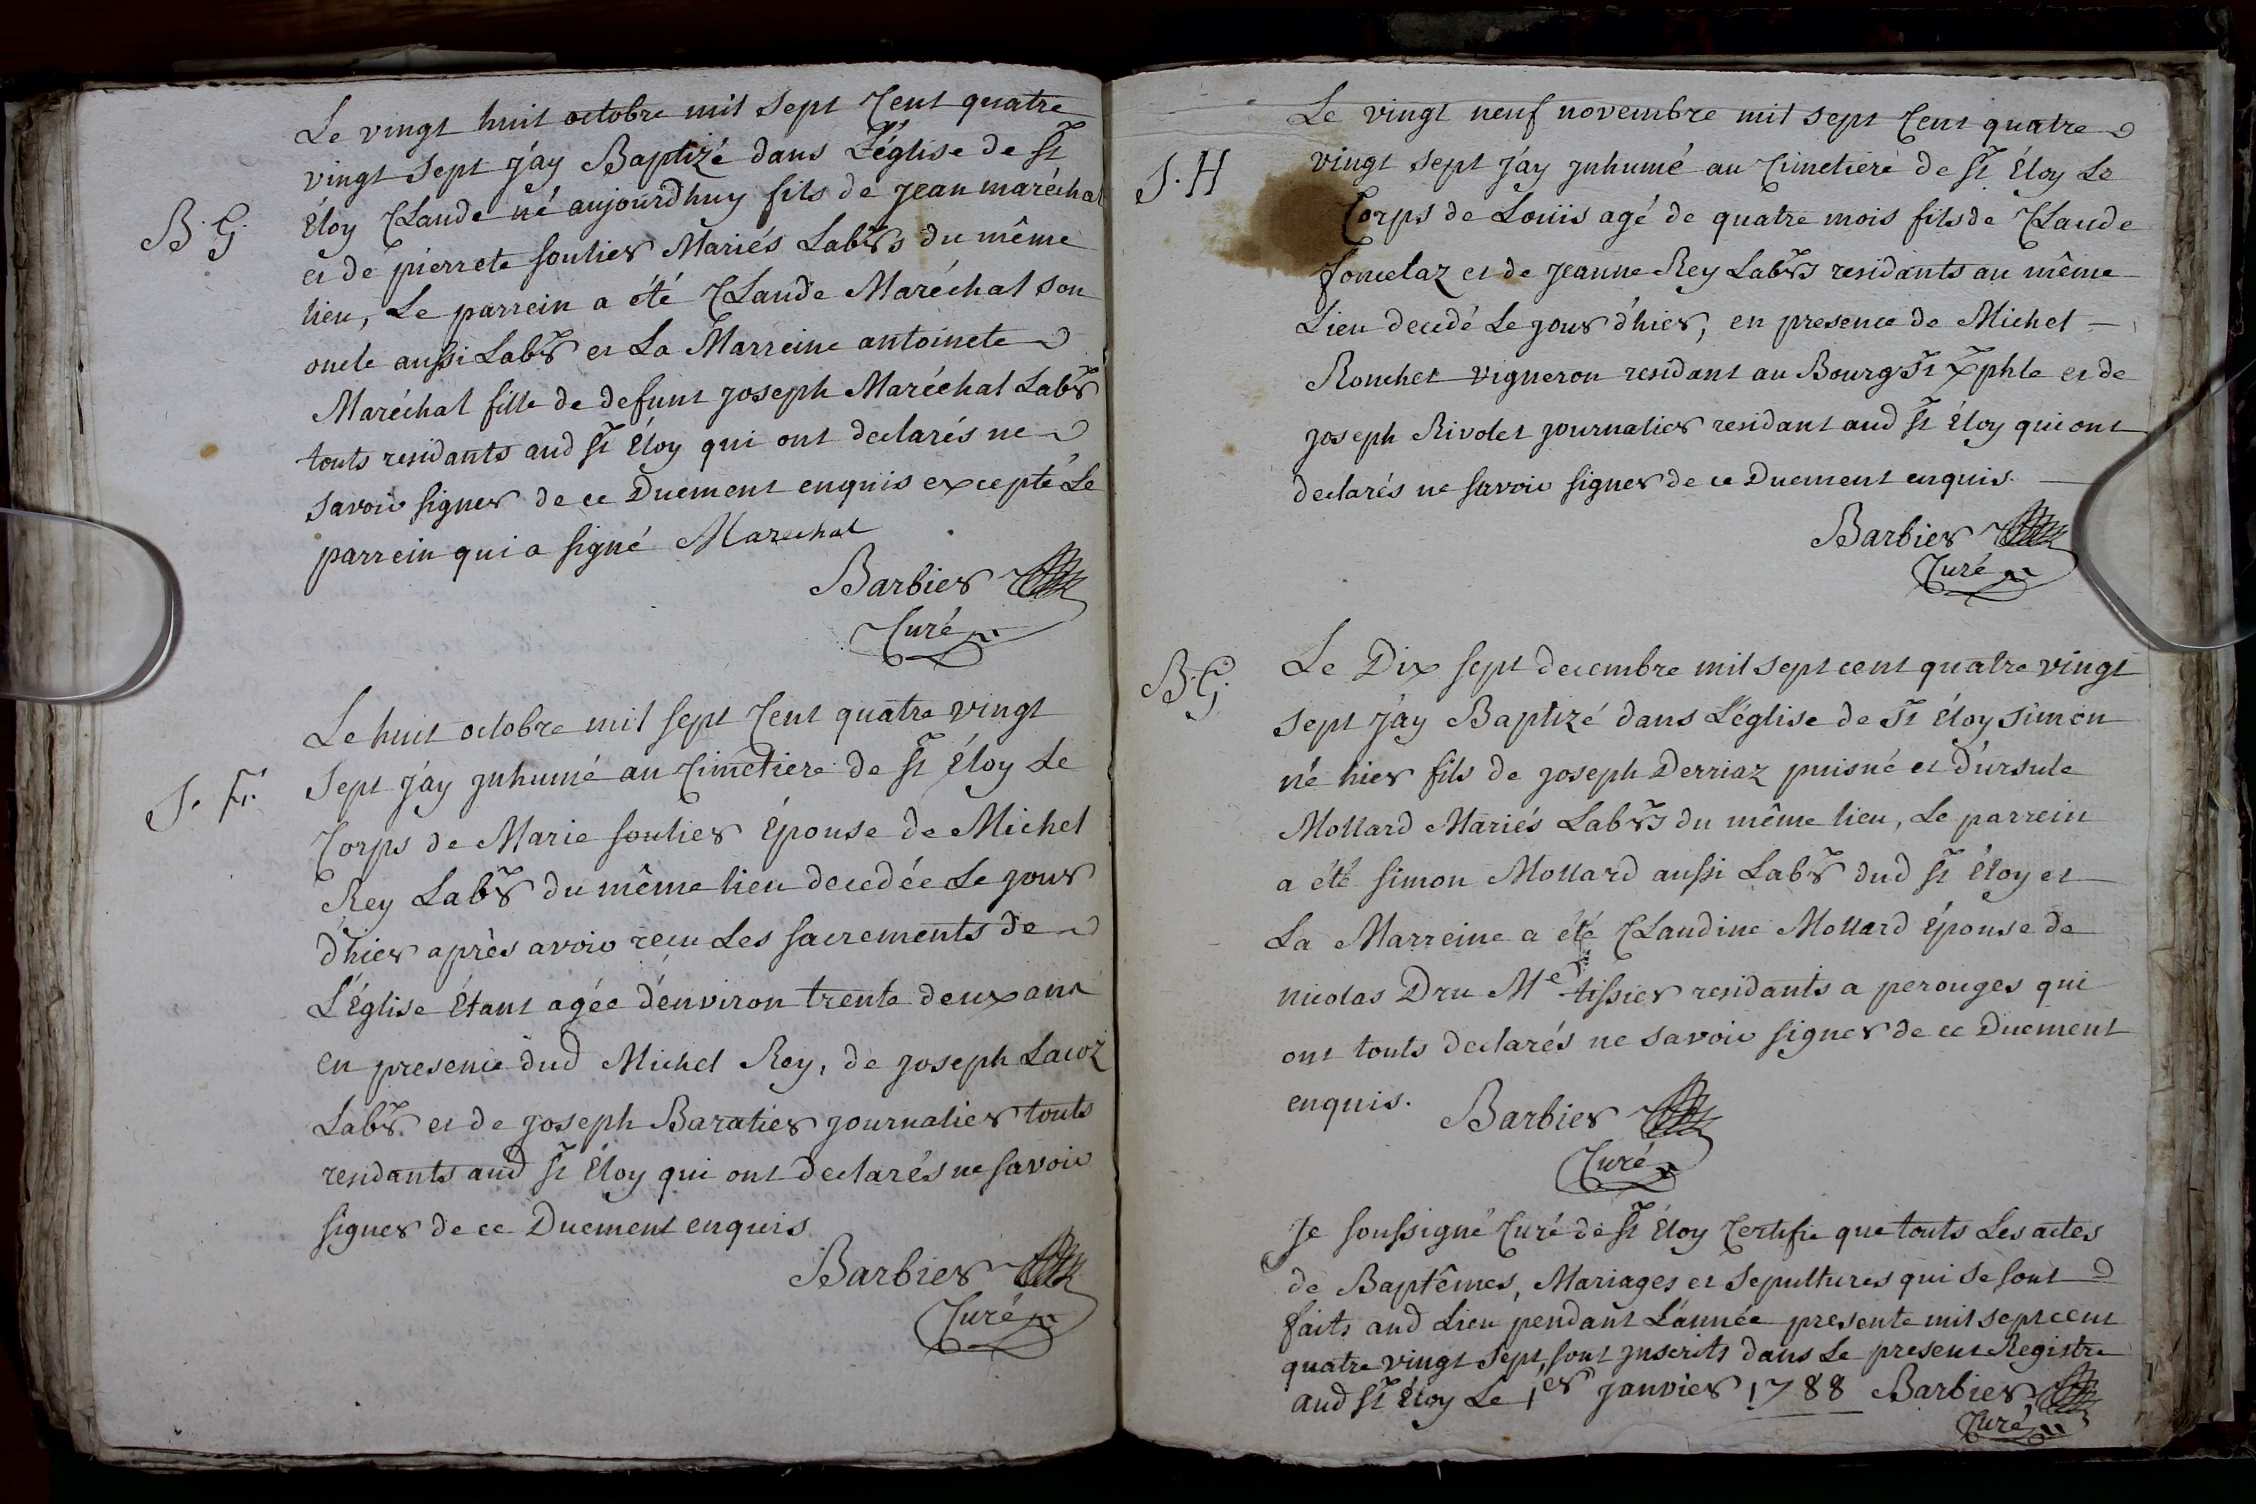 Le vingt huit octobre mil sept Cent quatre
vingt sept j'ay Baptizé dans L'église de St
B. G. Éloy CLaude né aujourdhuy fils de jean maréchal
et de pierrete soulier Mariés Labrs du même
lieu, Le parrein a été CLaude Maréchal son
oncle aussi Labr et La Marreine antoinete
Maréchal fille de defunt joseph Maréchal Labr
touts residants aud St Éloy qui ont declarés ne
savoir signer de ce Duement enquis excepté Le
parrein qui a signé Marechal
Barbier
Curé
Le huit octobre mil sept Cent quatre vingt
S. F. sept j'ay jnhumé au Cimetiere de St Éloy Le
Corps de Marie soulier Épouse de Michel
Rey Labr du même lieu decedée Le jour
d'hier après avoir reçu Les sacrements de
L'Église Étant agée d'environ trente deux ans
en presence dud Michel Rey, de joseph Lacoz
Labr et de joseph Baratier journalier touts
residants aud St Éloy qui ont declarés ne savoir
signer de ce Duement enquis
Barbier
Curé
Le vingt neuf novembre mil sept Cent quatre
S. H vingt sept j'ay jnhumé au Cimetiere de St Éloy Le
Corps de Loüis agé de quatre mois fils de CLaude
et de jeanne Rey Labrs residants au même
Lieu decedé Le jour d'hier, en presence de Michel
Ronchet vigneron residant au Bourg St Xphle et de
joseph Rivolet journalier residant aud St Éloy qui ont
declarés ne savoir signer de ce Duement enquis.
Barbier
Curé
B. G. Le Dix sept decembre mil sept cent quatre vingt
sept j'ay Baptizé dans L'église de St Éloy simon
né hier fils de joseph Derriaz puisné et d'ursule
Mollard Mariés Labrs du même lieu, Le parrein
a été simon Mollard aussi Labr dud St Éloy et
La Marreine a été CLaudine Mollard Épouse de
nicolas Dru Me tissier residants a perouges qui
ont touts declarés ne savoir signer de ce Duement
enquis. Barbier
Curé
Je soussigné Curé de St Éloy Certifie que touts Les actes
de Baptêmes, Mariages et Sepultures qui se sont
faits aud Lieu pendant L'année presente mil sept cent
quatre vingt sept, sont jnscrits dans Le present Registre
aud St Éloy Le 1er janvier 1788 Barbier
Curé